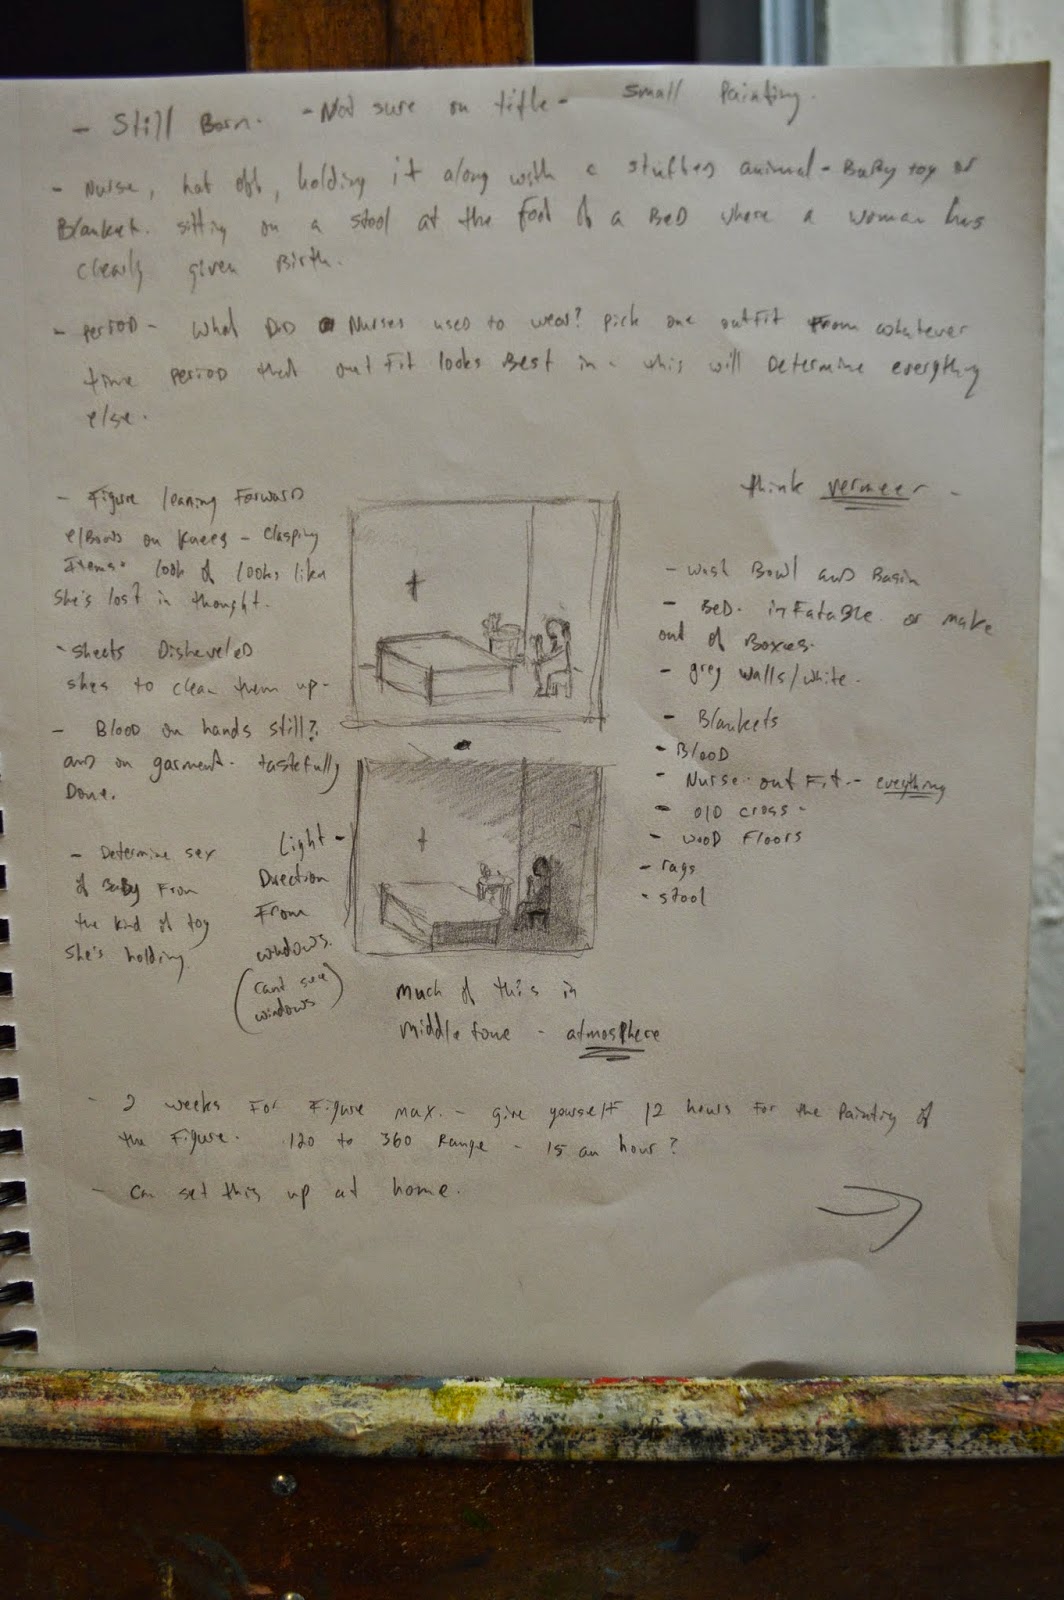 - Still Born. - Not sure on title - small Painting.
- Nurse, hat off, holding it along with a stuffed animal - Baby toy or
Blanket. sitting on a stool at the Foot of a BeD where a woman has
clearly given Birth.
- PerioD - What DiD Nurses used to wear? pick one outfit From whatever
time PerioD that outFit looks Best in - this will Determine everything
else.
- Figure leaning Forward
elBows on knees - clasping
Items. look of looks like
she's lost in thought.
- sheets DisheveleD
shes to clean them up -
- Blood on hands still?
anD on garment. tastefully
Done.
- Determine sex
of BaBy From
the kind of toy
She's holding.
Light -
Direction
From
windows.
(cant see
windows)
think vermeer -
- wash Bowl anD Basin
- BeD. inFatable or make
out of Boxes.
- grey walls/white.
- Blankets
- BlooD
- Nurse outFit - everything
- olD cross -
- wooD Floors
- rags
- stool
Much of this in
MiDDle tone - atmosphere
- 2 weeks For Figure max. - give yourselF 12 hours For the Painting of
the Figure. 120 to 360 Range - 15 an hour?
- Can set this up at home.